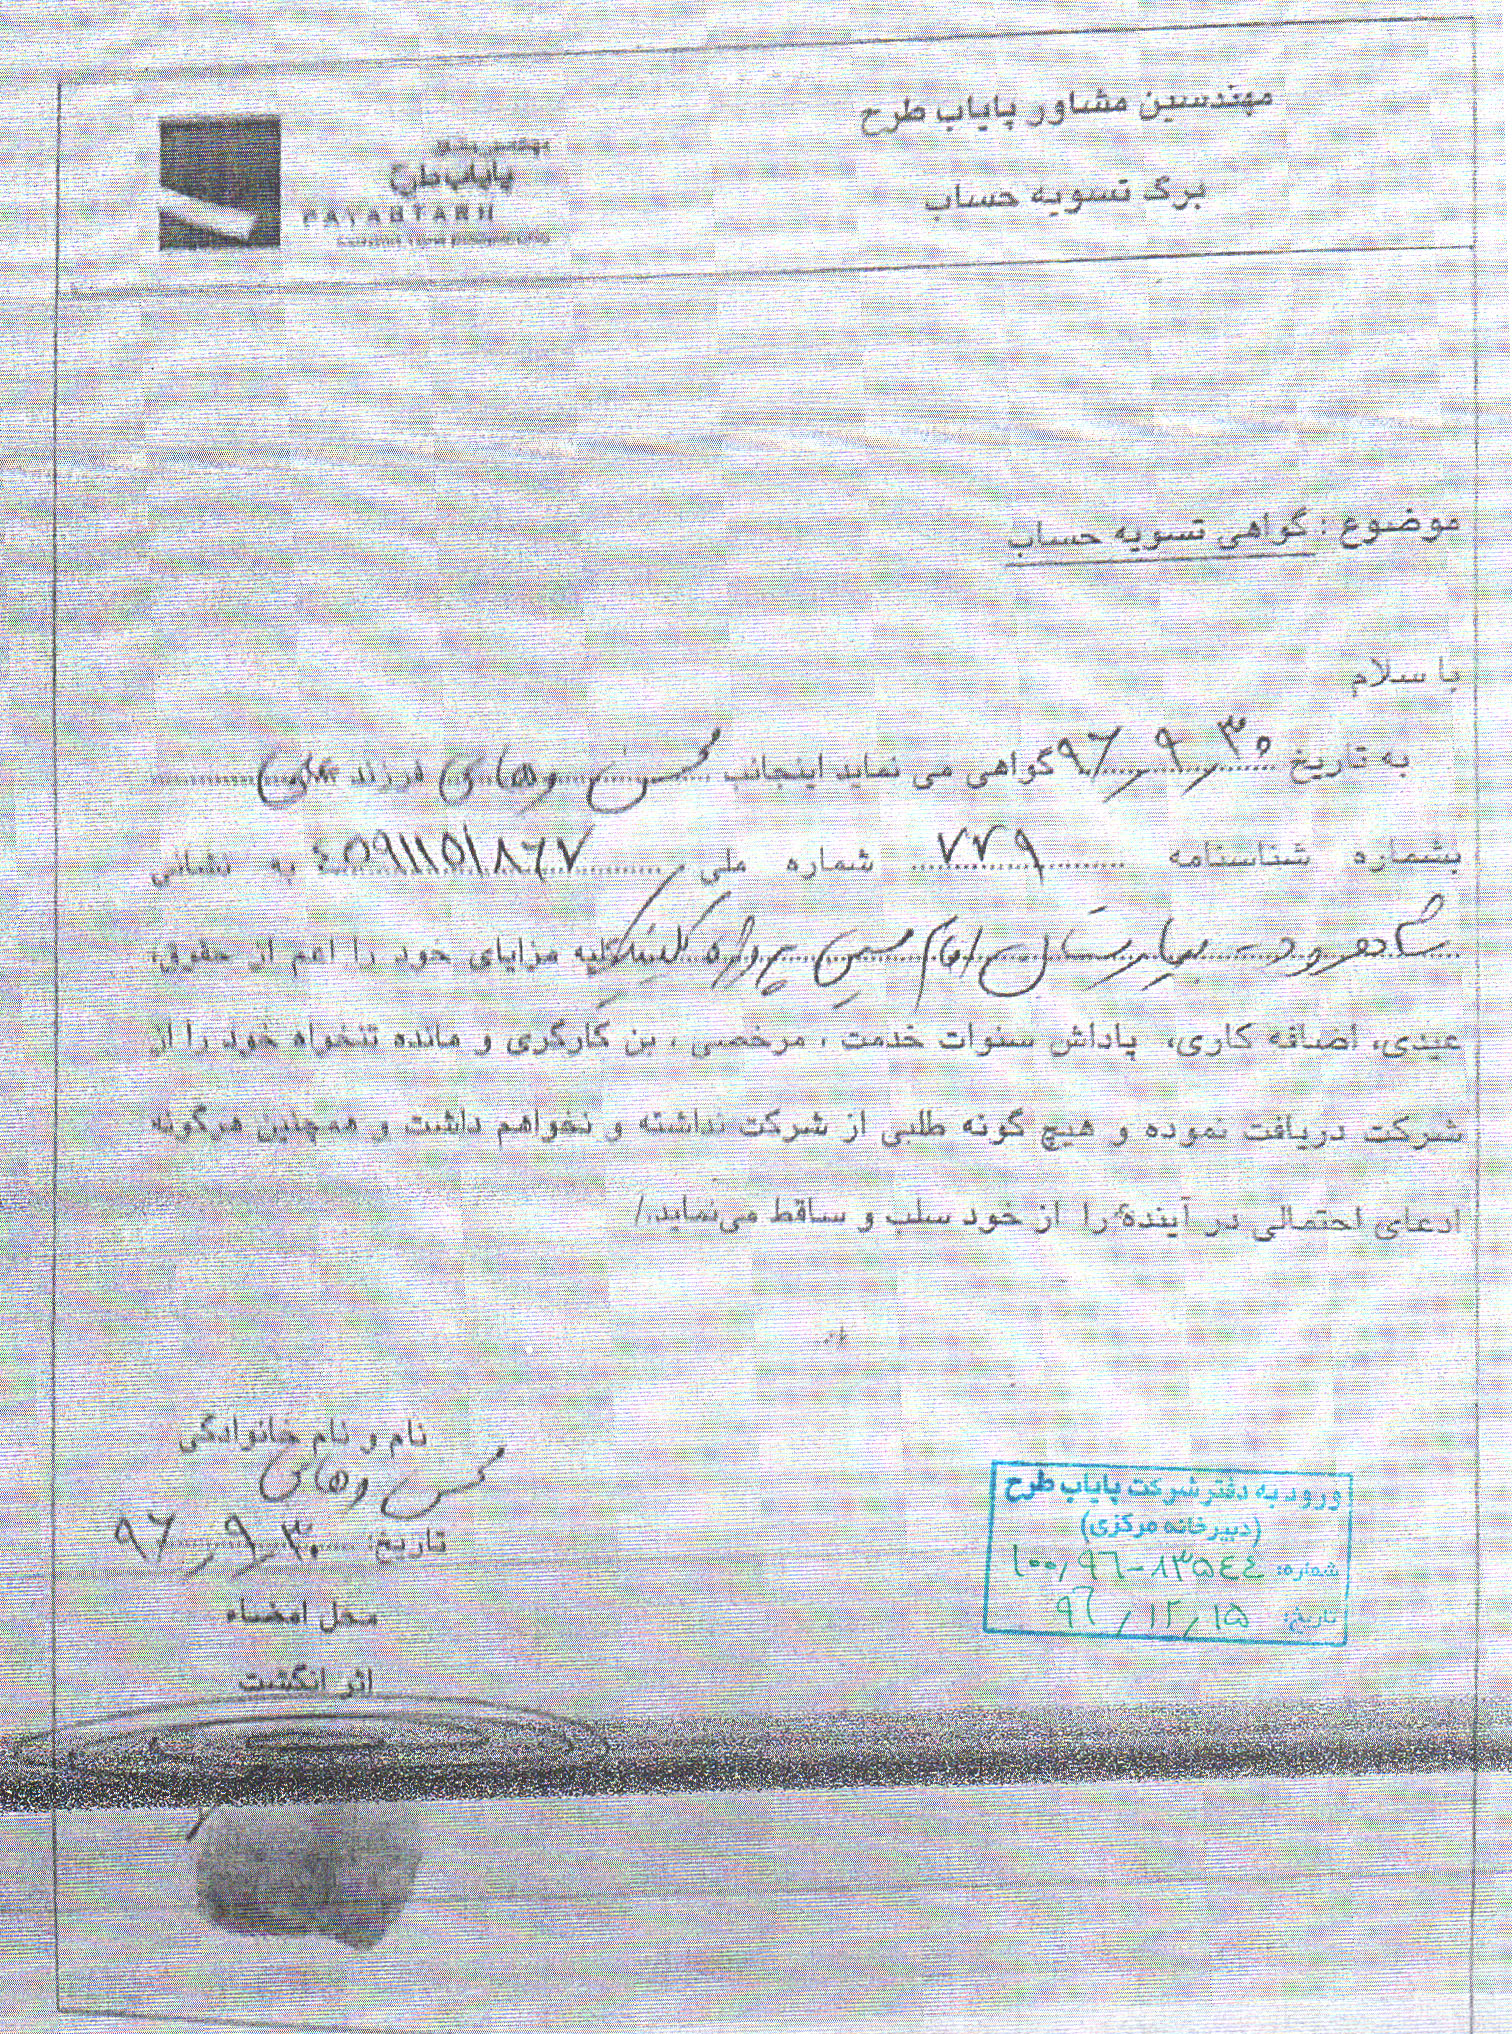 مهندسین مشاور پایاب طرح
برگ تسویه حساب
پایاب طرح
PAYABTARH
موضوع : گواهی تسویه حساب
با سلام
به تاریخ ۹۶/۹/۳۰ گواهی می نماید اینجانب محسن وهابی فرزند علی
بشماره شناسنامه ۷۷۹ شماره ملی ۴۵۹۱۱۵۱۸۶۷ به نشانی
شاهرود - بیمارستان امام حسین پروژه کلینیک کلیه مزایای خود را اعم از حقوق،
عیدی، اضافه کاری، پاداش سنوات خدمت ، مرخصی ، بن کارگری و مانده تنخواه خود را از
شرکت دریافت نموده و هیچ گونه طلبی از شرکت نداشته و نخواهم داشت و همچنین هرگونه
ادعای احتمالی در آینده را از خود سلب و ساقط می‌نماید./
نام و نام خانوادگی
محسن وهابی
تاریخ: ۹۶/۹/۳۰
محل امضاء
اثر انگشت
ورود به دفتر شرکت پایاب طرح
(دبیرخانه مرکزی)
شماره: ۱۰۰/۹۶-۸۳۵۴۴
تاریخ: ۹۶/۱۲/۱۵